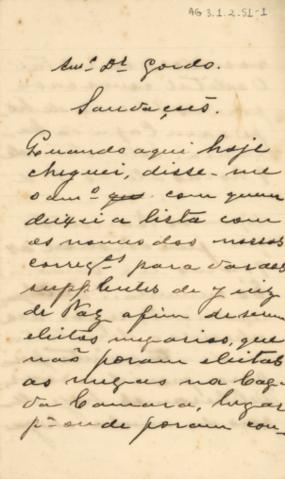 AG 3.1.2.51-1
Am.º Dr Gordo.
Saudações.
Quando aqui hoje
cheguei, disse-me
o am.º que com quem
deixei a lista com
os nomes dos nossos
correg.ºs para
supplentes de Juiz
de Paz afim de serem
eleitos, que
não foram eleitos
as na
da Camara, lugar
p.ª onde foram con-